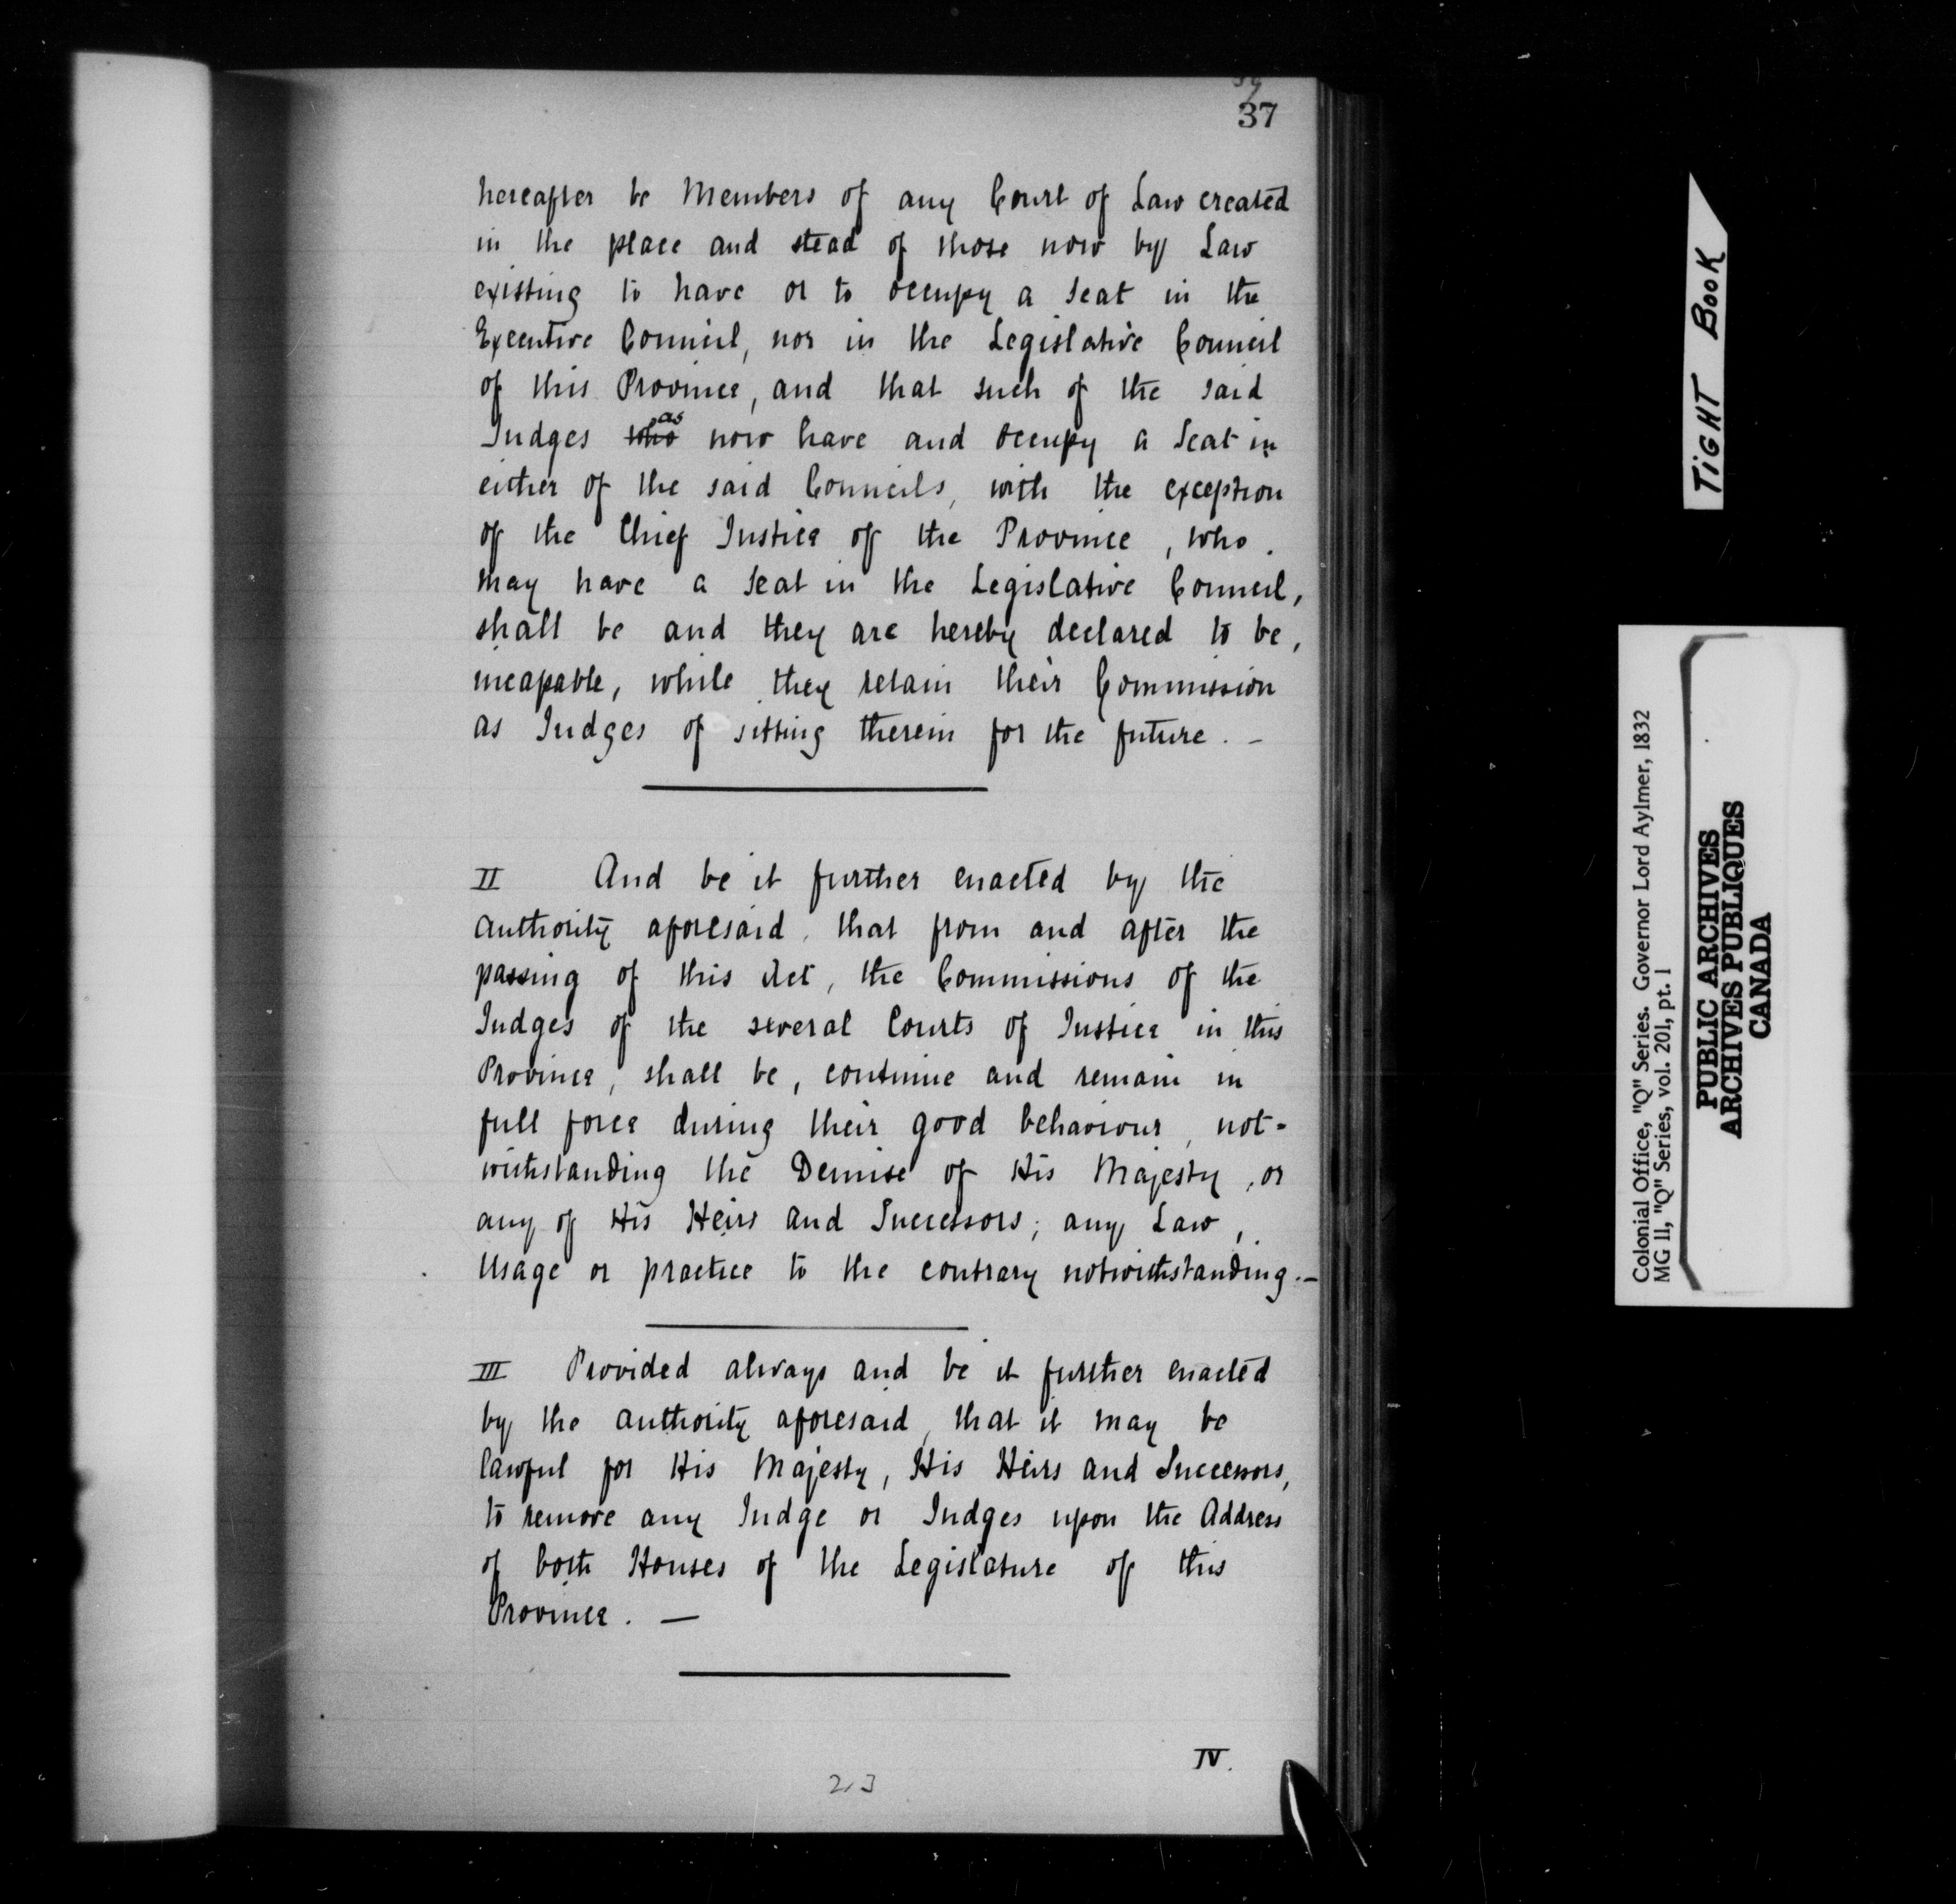 37
hereafter be Members of any Court of Law created
in the place and stead of those now by Law
existing to have or to occupy a Seat in the
Executive Council, nor in the Legislative Council
of this Province, and that such of the said
Judges who as now have and occupy a Seat in
either of the said Councils, with the exception
of the Chief Justice of the Province, who
may have a Seat in the Legislative Council,
shall be and they are hereby declared to be,
incapable, while they retain their Commission
as Judges of sitting therein for the future. -
II And be it further enacted by the
authority aforesaid, that from and after the
passing of this Act, the Commissions of the
Judges of the several Courts of Justice in this
Province, shall be, continue and remain in
full force during their good behaviour, not-
withstanding the Demise of His Majesty, or
any of His Heirs and Successors; any Law,
Usage or practice to the contrary notwithstanding. -
III Provided always and be it further enacted
by the authority aforesaid, that it may be
lawful for His Majesty, His Heirs and Successors,
to remove any Judge or Judges upon the Address
of both Houses of the Legislature of this
Province. -
IV.
213
TIGHT BOOK
Colonial Office, "Q" Series. Governor Lord Aylmer, 1832
MG 11, "Q" Series, vol. 201, pt. 1
PUBLIC ARCHIVES
ARCHIVES PUBLIQUES
CANADA